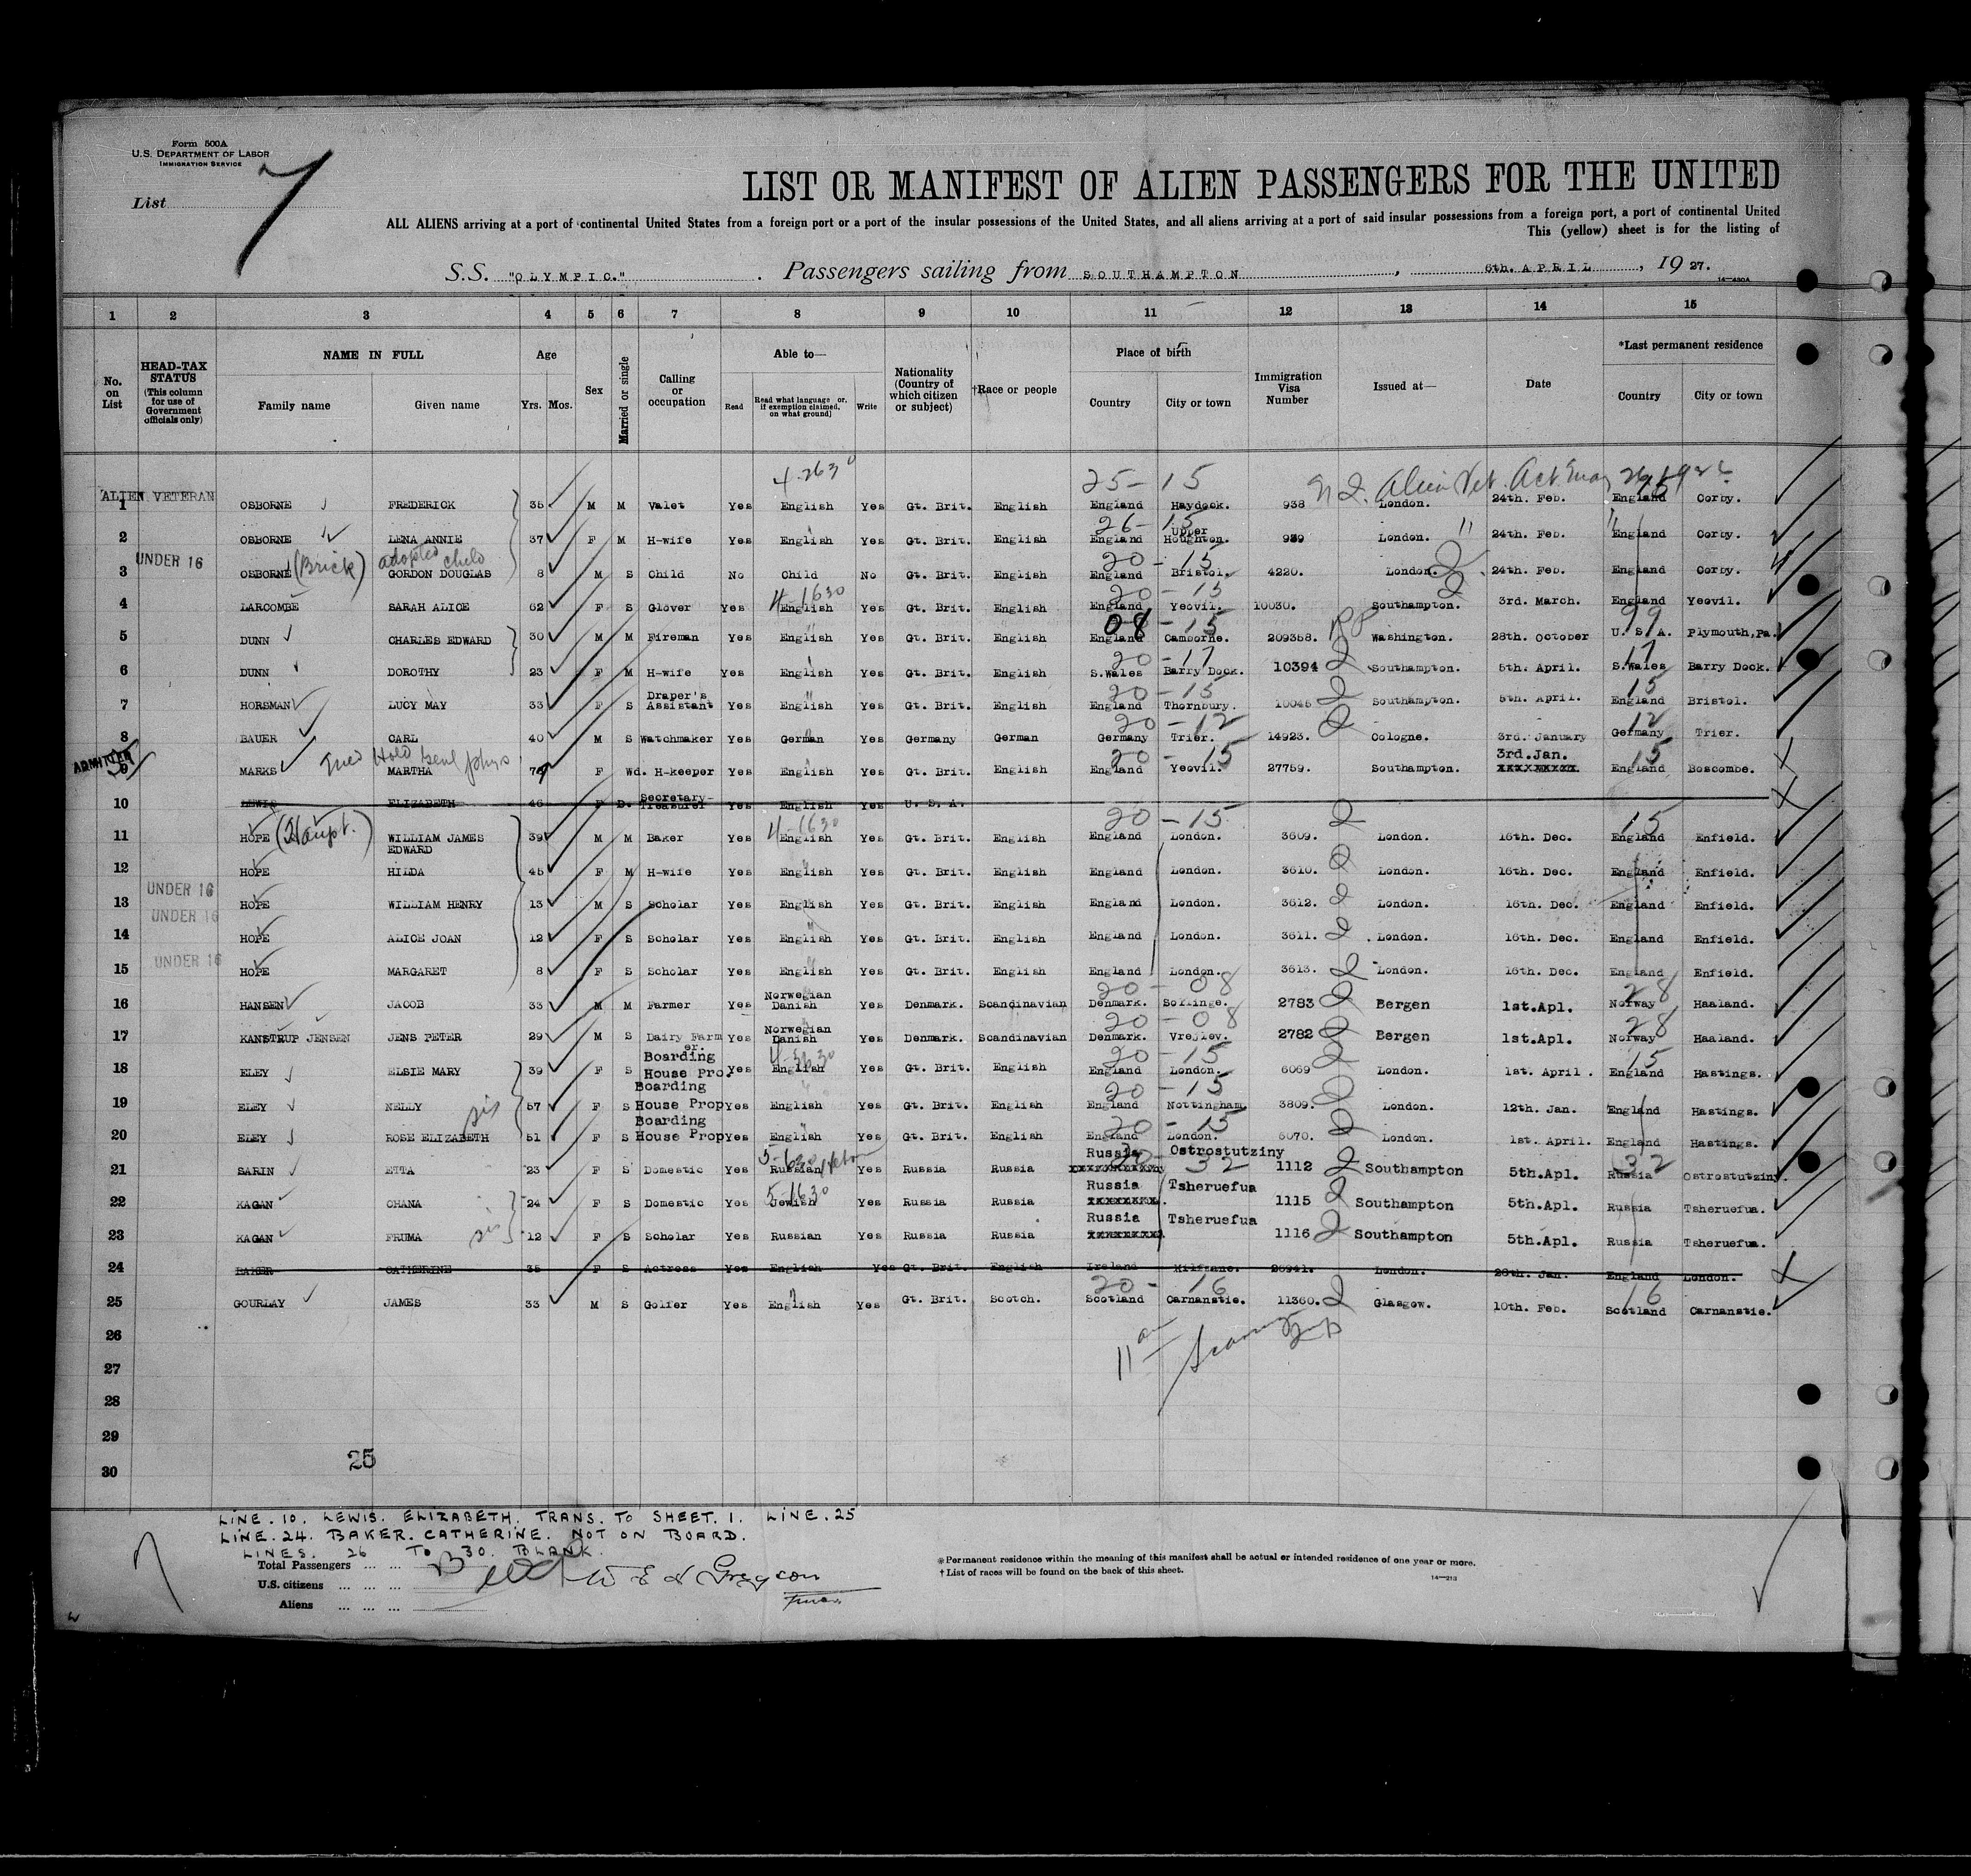 Form 500A
U.S. DEPARTMENT OF LABOR
IMMIGRATION SERVICE
List 7
LIST OR MANIFEST OF ALIEN PASSENGERS FOR THE UNITED
ALL ALIENS arriving at a port of continental United States from a foreign port or a port of the insular possessions of the United States, and all aliens arriving at a port of said insular possessions from a foreign port, a port of continental United
This (yellow) sheet is for the listing of
S.S. "OLYMPIC." Passengers sailing from SOUTHAMPTON, 6th. APRIL, 1927.
14-490A
1 2 3 4 5 6 7 8 9 10 11 12 13 14 15
No. on List
HEAD-TAX STATUS (This column for use of Government officials only)
NAME IN FULL
Family name Given name
Age
Yrs. Mos.
Sex
Married or single
Calling or occupation
Able to—
Read
Read what language or, if exemption claimed, on what ground)
Write
Nationality (Country of which citizen or subject)
†Race or people
Place of birth
Country City or town
Immigration Visa Number
Issued at—
Date
*Last permanent residence
Country City or town
4-2630 25-15 Alien Vet. Act May 26 1926
ALIEN VETERAN
1 OSBORNE FREDERICK 35 M M Valet Yes English Yes Gt. Brit. English England Haydock. 938 London. 24th. Feb. England Corby.
26-15
2 OSBORNE LENA ANNIE 37 F M H-wife Yes English Yes Gt. Brit. English England Upper Houghton. 939 London. 24th. Feb. England Corby.
UNDER 16 (Brick) adopted child 20-15
3 OSBORNE GORDON DOUGLAS 8 M S Child No Child No Gt. Brit. English England Bristol. 4220. London. 24th. Feb. England Corby.
4-1630 20-15
4 LARCOMBE SARAH ALICE 62 F S Glover Yes English Yes Gt. Brit. English England Yeovil. 10030. Southampton. 3rd. March. England Yeovil.
08-15 99
5 DUNN CHARLES EDWARD 30 M M Fireman Yes English Yes Gt. Brit. English England Camborne. 209358. Washington. 28th. October U.S.A. Plymouth, Pa.
20-17 17
6 DUNN DOROTHY 23 F M H-wife Yes English Yes Gt. Brit. English S.Wales Barry Dock. 10394 Southampton. 5th. April. S.Wales Barry Dock.
20-15 15
7 HORSMAN LUCY MAY 33 F S Draper's Assistant Yes English Yes Gt. Brit. English England Thornbury. 10045 Southampton. 5th. April. England Bristol.
20-12 12
8 BAUER CARL 40 M S Watchmaker Yes German Yes Germany German Germany Trier. 14923. Cologne. 3rd. January Germany Trier.
ADMITTED 20-15 3rd.Jan. 15
9 MARKS MARTHA 74 F Wd. H-keeper Yes English Yes Gt. Brit. English England Yeovil. 27759. Southampton. XXXXXXXXX England Boscombe.
10 LEWIS ELIZABETH 46 F D. Secretary-Treasurer Yes English Yes U. S. A.
(Haupt.) 4-1630 20-15 15
11 HOPE WILLIAM JAMES EDWARD 39 M M Baker Yes English Yes Gt. Brit. English England London. 3609. London. 16th. Dec. England Enfield.
12 HOPE HILDA 45 F M H-wife Yes English Yes Gt. Brit. English England London. 3610. London. 16th. Dec. England Enfield.
UNDER 16
13 HOPE WILLIAM HENRY 13 M S Scholar Yes English Yes Gt. Brit. English England London. 3612. London. 16th. Dec. England Enfield.
UNDER 16
14 HOPE ALICE JOAN 12 F S Scholar Yes English Yes Gt. Brit. English England London. 3611. London. 16th. Dec. England Enfield.
UNDER 16
15 HOPE MARGARET 8 F S Scholar Yes English Yes Gt. Brit. English England London. 3613. London. 16th. Dec. England Enfield.
20-08 28
16 HANSEN JACOB 33 M M Farmer Yes Norwegian Danish Yes Denmark. Scandinavian Denmark. Soffinge. 2783 Bergen 1st.Apl. Norway Haaland.
20-08 28
17 KANSTRUP JENSEN JENS PETER 29 M S Dairy Farmer. Yes Norwegian Danish Yes Denmark. Scandinavian Denmark. Vrejlev. 2782 Bergen 1st.Apl. Norway Haaland.
4-3630 20-15 15
18 ELEY ELSIE MARY 39 F S Boarding House Pro. Yes English Yes Gt. Brit. English England London. 6069 London. 1st. April. England Hastings.
20-15
19 ELEY NELLY sis 57 F S Boarding House Prop Yes English Yes Gt. Brit. English England Nottingham. 3809. London. 12th. Jan. England Hastings.
20-15
20 ELEY ROSE ELIZABETH 51 F S Boarding House Prop Yes English Yes Gt. Brit. English England London. 6070. London. 1st. April. England Hastings.
5-1630 20-32 32
21 SARIN ETTA 23 F S Domestic Yes Russian Yes Russia Russia Russia Ostrostutziny 1112 Southampton 5th.Apl. Russia Ostrostutziny.
5-1630
22 KAGAN CHANA 24 F S Domestic Yes Jewish Yes Russia Russia Russia Tsheruefua 1115 Southampton 5th.Apl. Russia Tsheruefua.
23 KAGAN FRUMA sis 12 F S Scholar Yes Russian Yes Russia Russia Russia Tsheruefua 1116 Southampton 5th.Apl. Russia Tsheruefua.
24 BAKER CATHERINE 35 F S Actress Yes English Yes Gt. Brit. English Ireland 26941. London. 28th. Jan. England London.
20-16 16
25 GOURLAY JAMES 33 M S Golfer Yes English Yes Gt. Brit. Scotch. Scotland Carnanstie. 11360. Glasgow. 10th. Feb. Scotland Carnanstie.
26
27
28
29
30
11 am
25
LINE. 10. LEWIS. ELIZABETH. TRANS. TO SHEET. 1. LINE. 25
LINE. 24. BAKER. CATHERINE. NOT ON BOARD.
LINES. 26 TO 30. BLANK.
Total Passengers
U.S. citizens
Aliens
*Permanent residence within the meaning of this manifest shall be actual or intended residence of one year or more.
†List of races will be found on the back of this sheet.
14-213